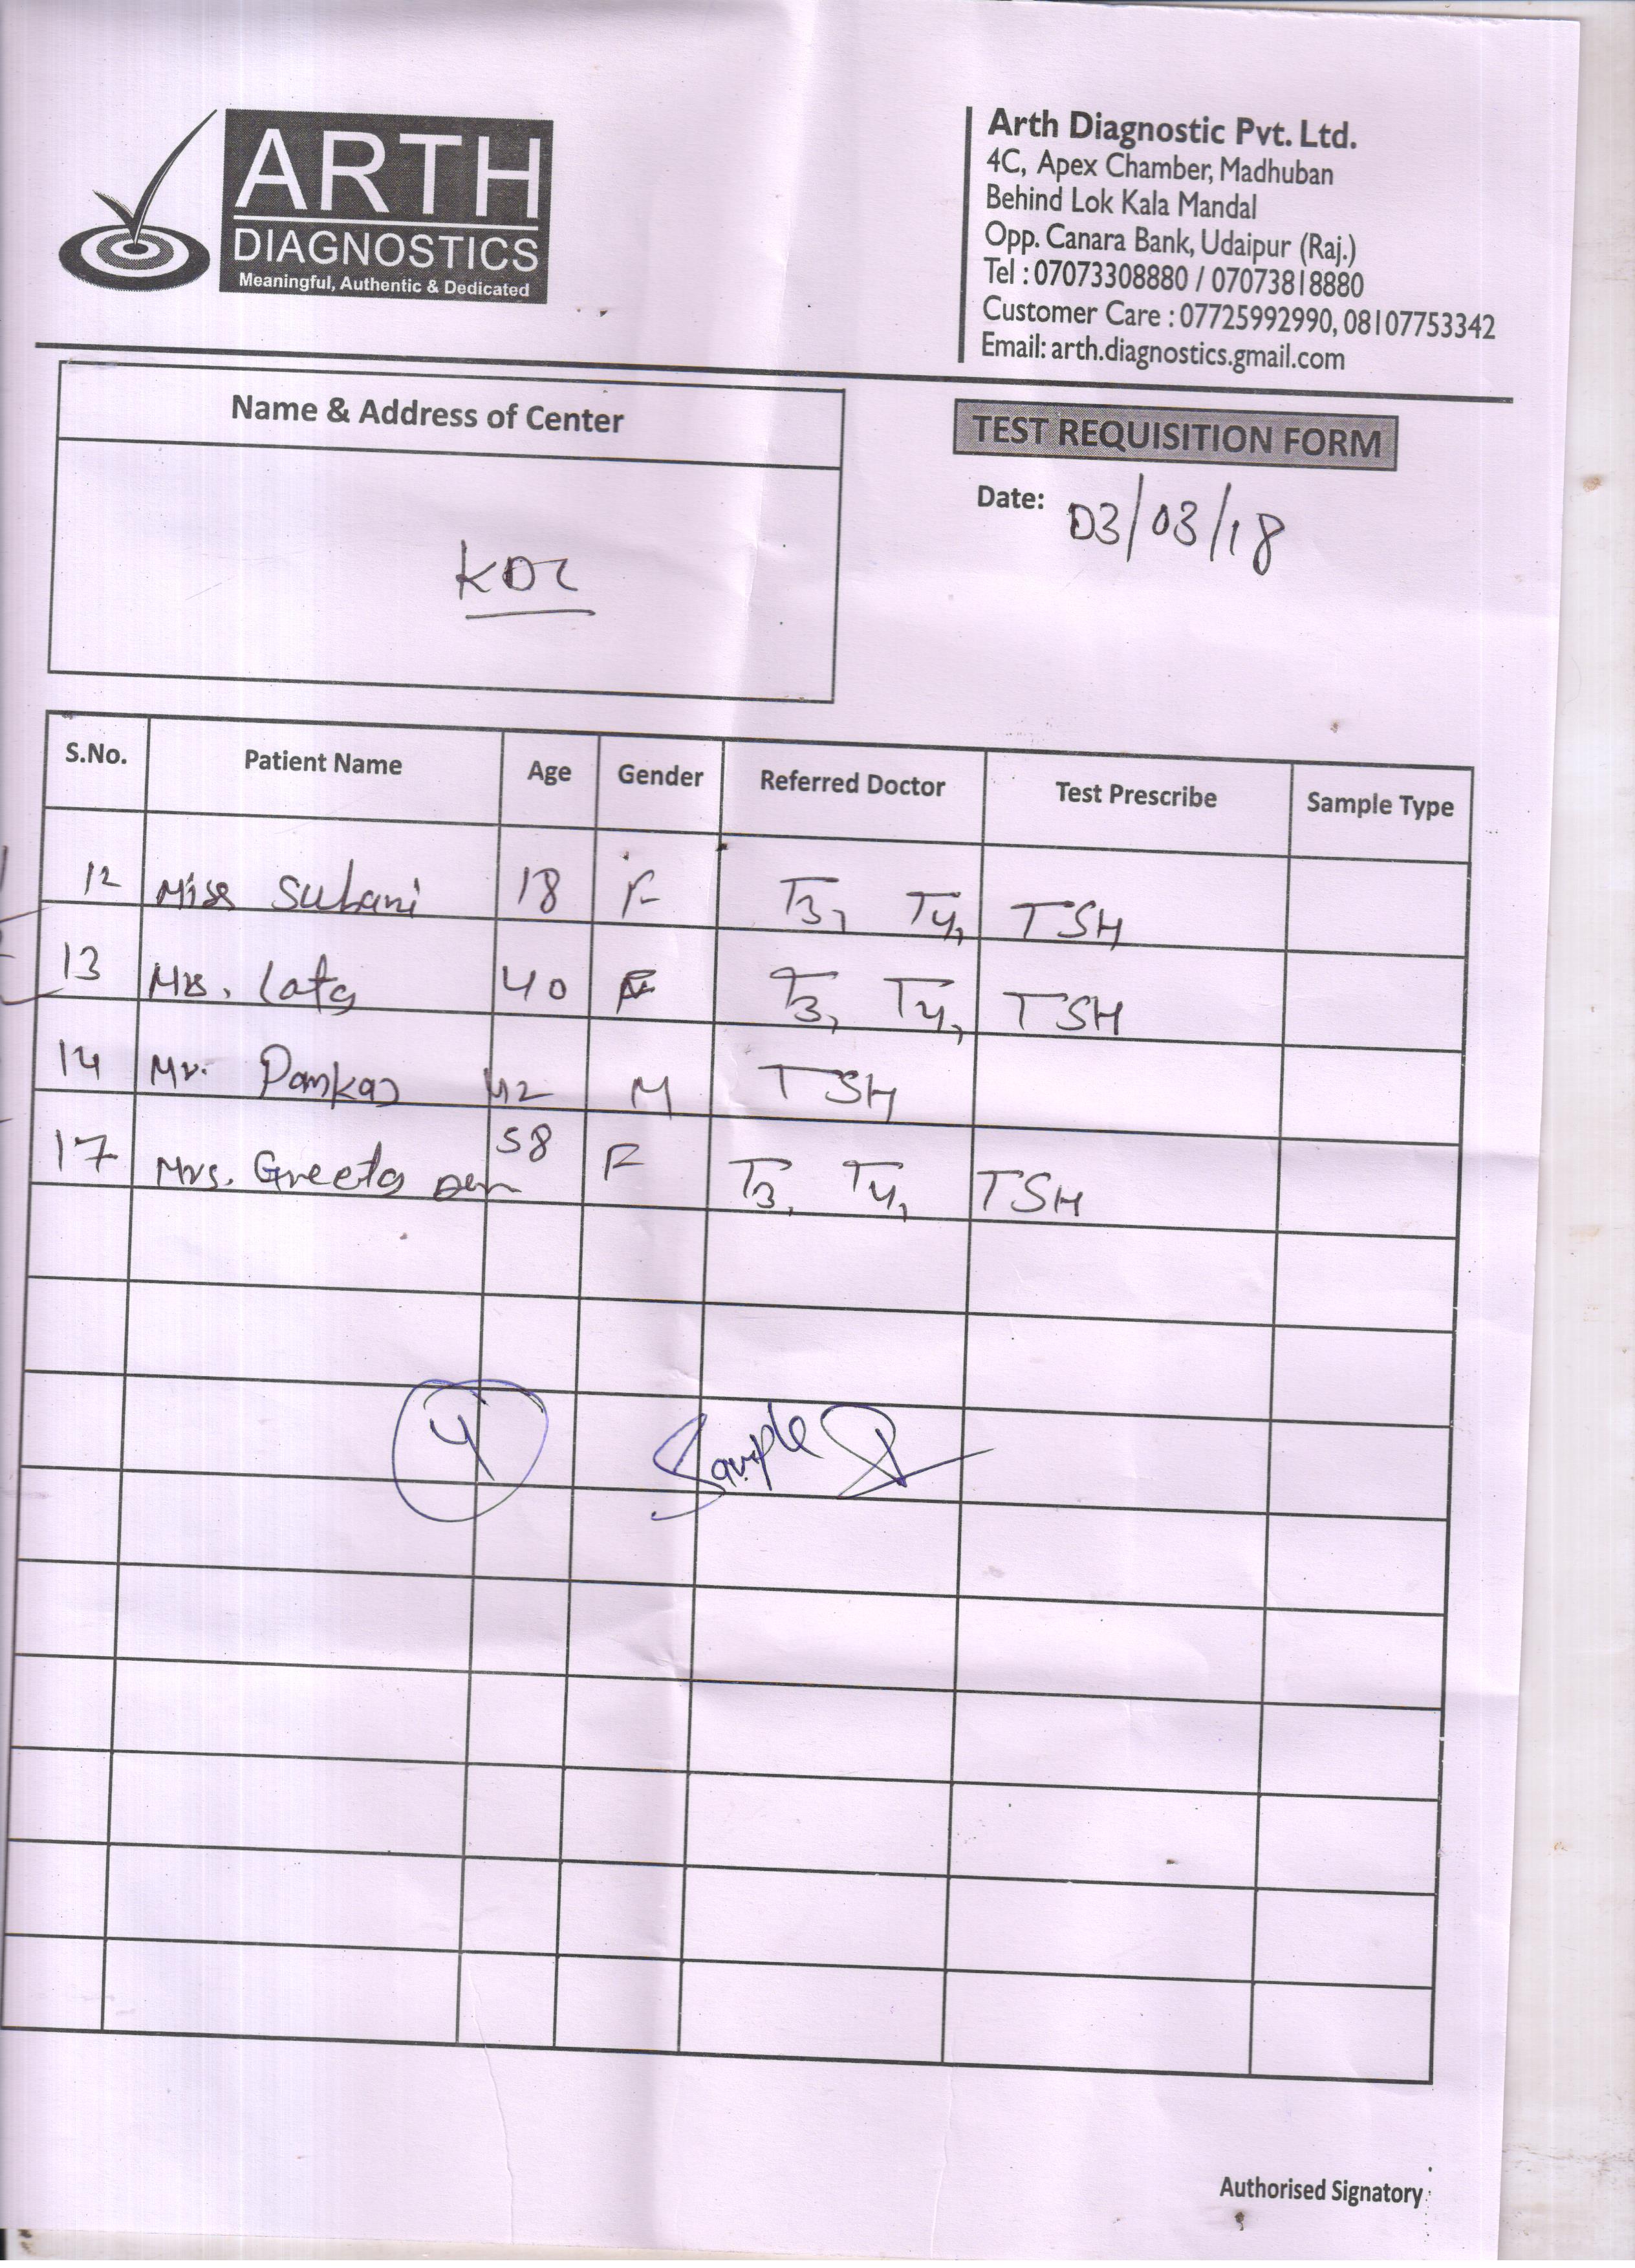 ARTH
DIAGNOSTICS
Meaningful, Authentic & Dedicated
Arth Diagnostic Pvt. Ltd.
4C, Apex Chamber, Madhuban
Behind Lok Kala Mandal
Opp. Canara Bank, Udaipur (Raj.)
Tel : 07073308880 / 07073818880
Customer Care : 07725992990, 08107753342
Email: arth.diagnostics.gmail.com
Name & Address of Center
TEST REQUISITION FORM
Date: 03/03/18
S.No. Patient Name Age Gender Referred Doctor Test Prescribe Sample Type
12 Miss 18 F T3, T4, TSH
13 Mrs. Lata 40 F T3, T4, TSH
14 Mr. Pankaj 42 M TSH
17 Mrs. Geeta 58 F T3, T4, TSH
4 Sample
Authorised Signatory